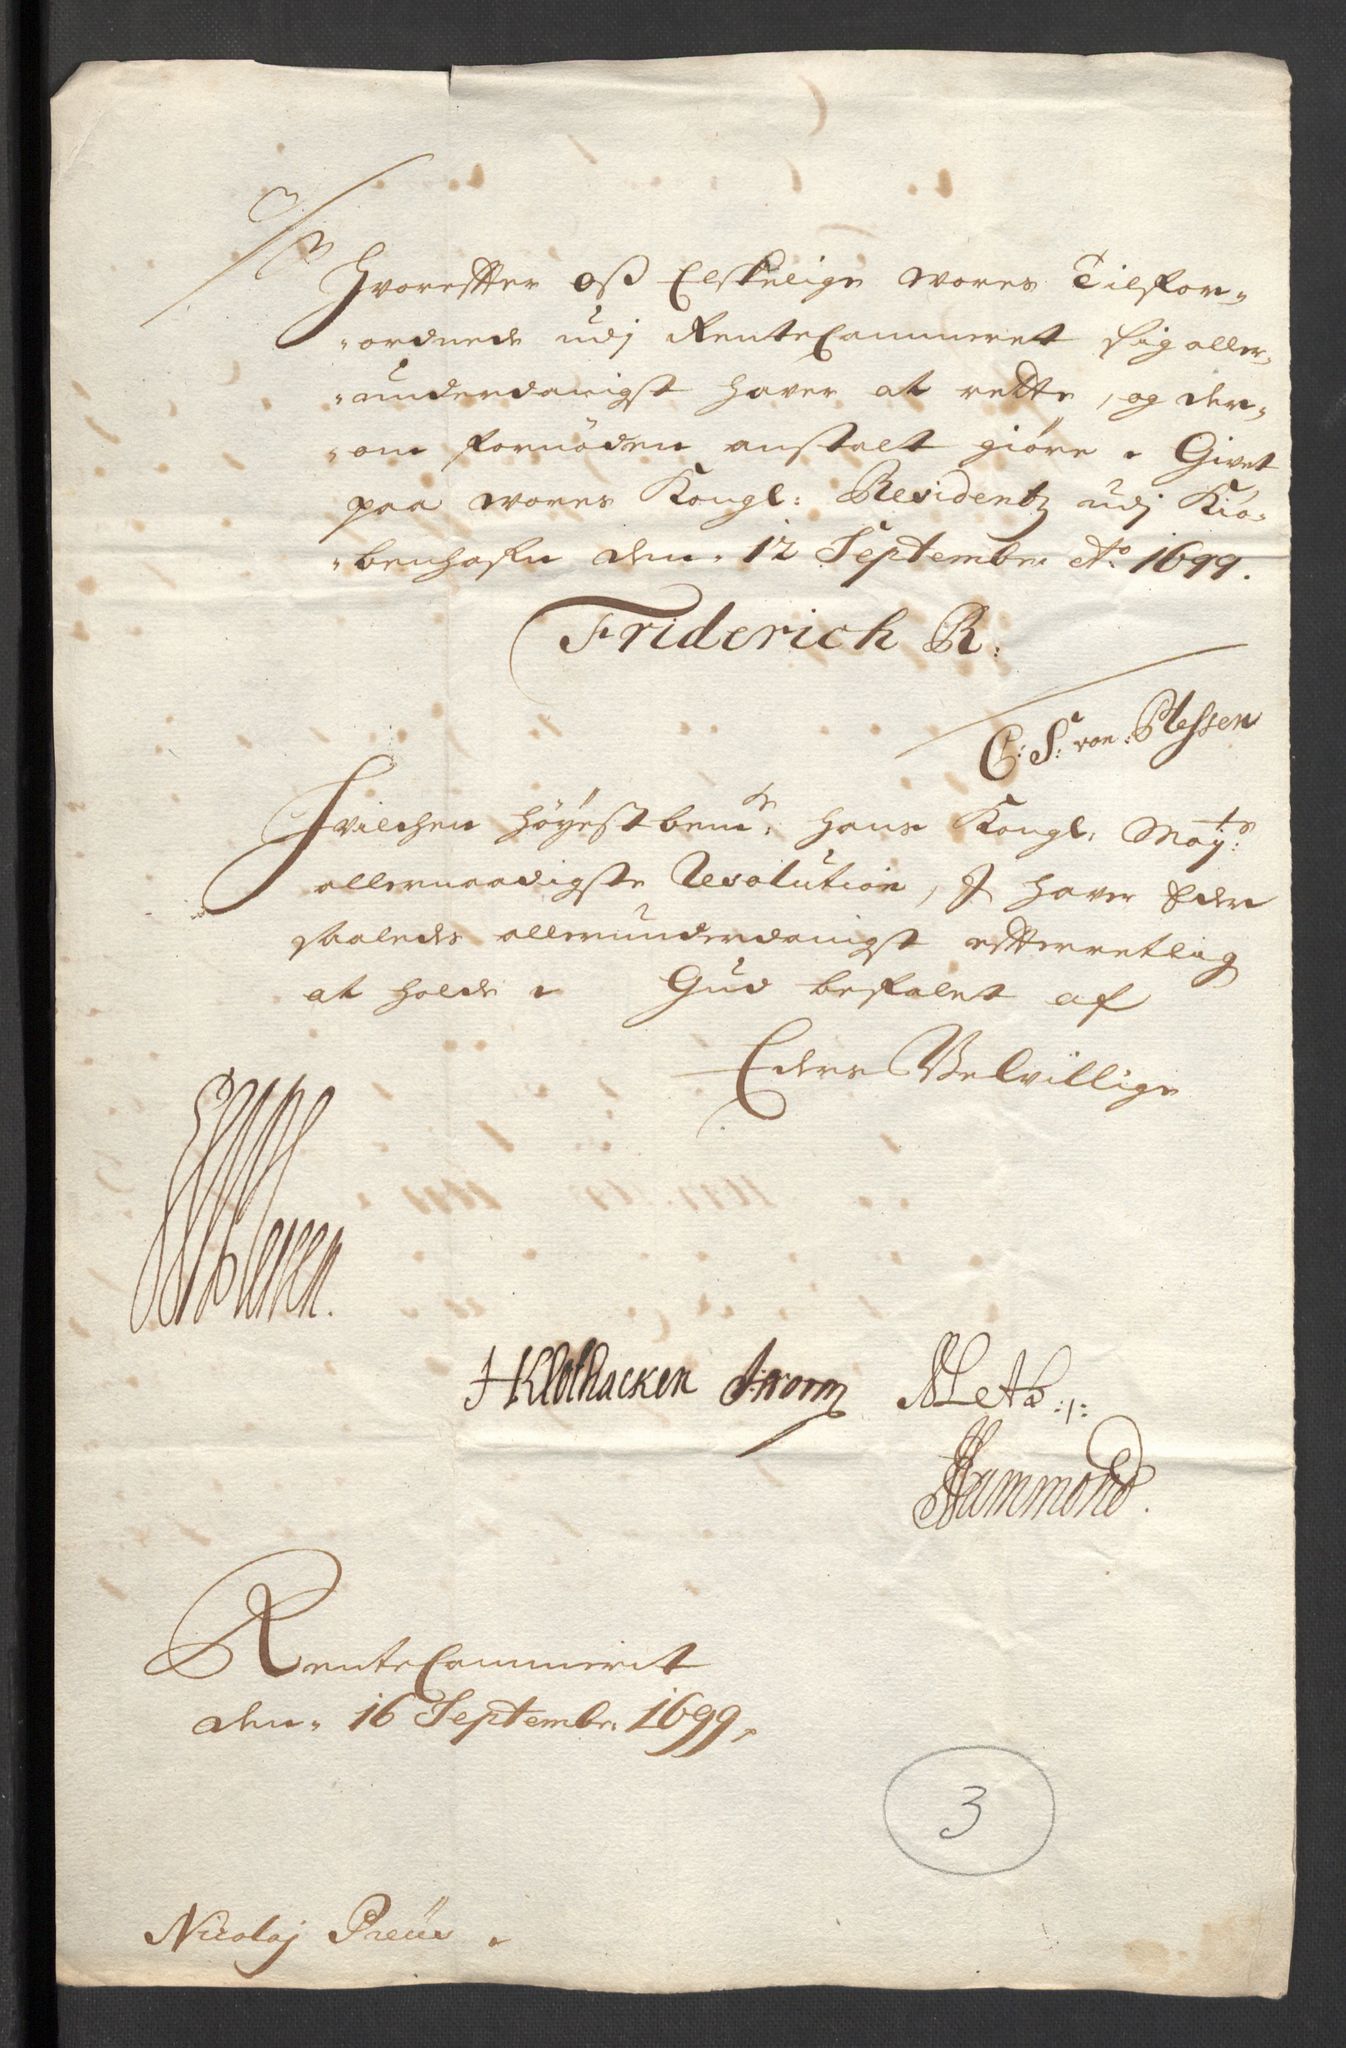 Hvoreffter oß Elskelige Wores Tilfor-
-ordnede udj RenteCammeret sig aller-
-underdanigst haver at rette, og der-
-om fornöden anstalt giöre. Givet
paa Wores Kongl: Residentz udj Kiö-
-benhafn den. 12 September Ao. 1699.
Friderich R.
C: S: von: Plessen
Hvilchen höyestbemte: hans Kongl: Mayts:
allernaadigste Resolution, I haver Eder
saaledes allerunderdanigst effterretlig
at holde. Gud befalet af
Eders Velvillige
H Klothacken J: Worm Metz:
Hammond.
RenteCammerit
den. 16 Septembr: 1699.
3
Nicolaj Preus.